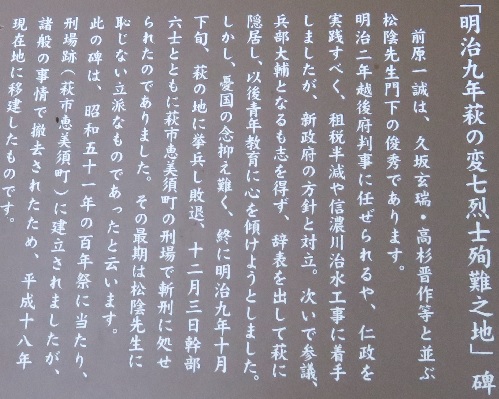 「明治九年萩の変七烈士殉難之地」碑
前原一誠は、久坂玄瑞・高杉晋作等と並ぶ
松陰先生門下の俊秀であります。
明治二年越後府判事に任ぜられるや、仁政を
実践すべく、租税半減や信濃川治水工事に着手
しましたが、新政府の方針と対立。次いで参議、
兵部大輔となるも志を得ず、辞表を出して萩に
隠居し、以後青年教育に心を傾けようとしました。
しかし、憂国の念抑え難く、終に明治九年十月
下旬、萩の地に挙兵し敗退、十二月三日幹部
六士とともに萩市恵美須町の刑場で斬刑に処せ
られたのでありました。その最期は松陰先生に
恥じない立派なものであったと云います。
此の碑は、昭和五十一年の百年祭に当たり、
刑場跡(萩市恵美須町)に建立されましたが、
諸般の事情で撤去されたため、平成十八年
現在地に移建したものです。